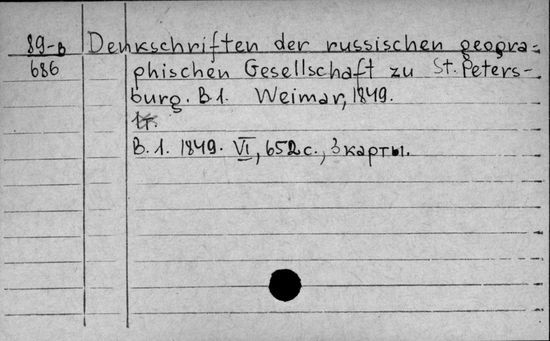 89-в Denkschriften der russischen geogra-
686 phischen Gesellschaft zu St. Peters-
burg. B 1. Weimar, 1849.
B. 1. 1849. VI, 652 с., 3 карты.